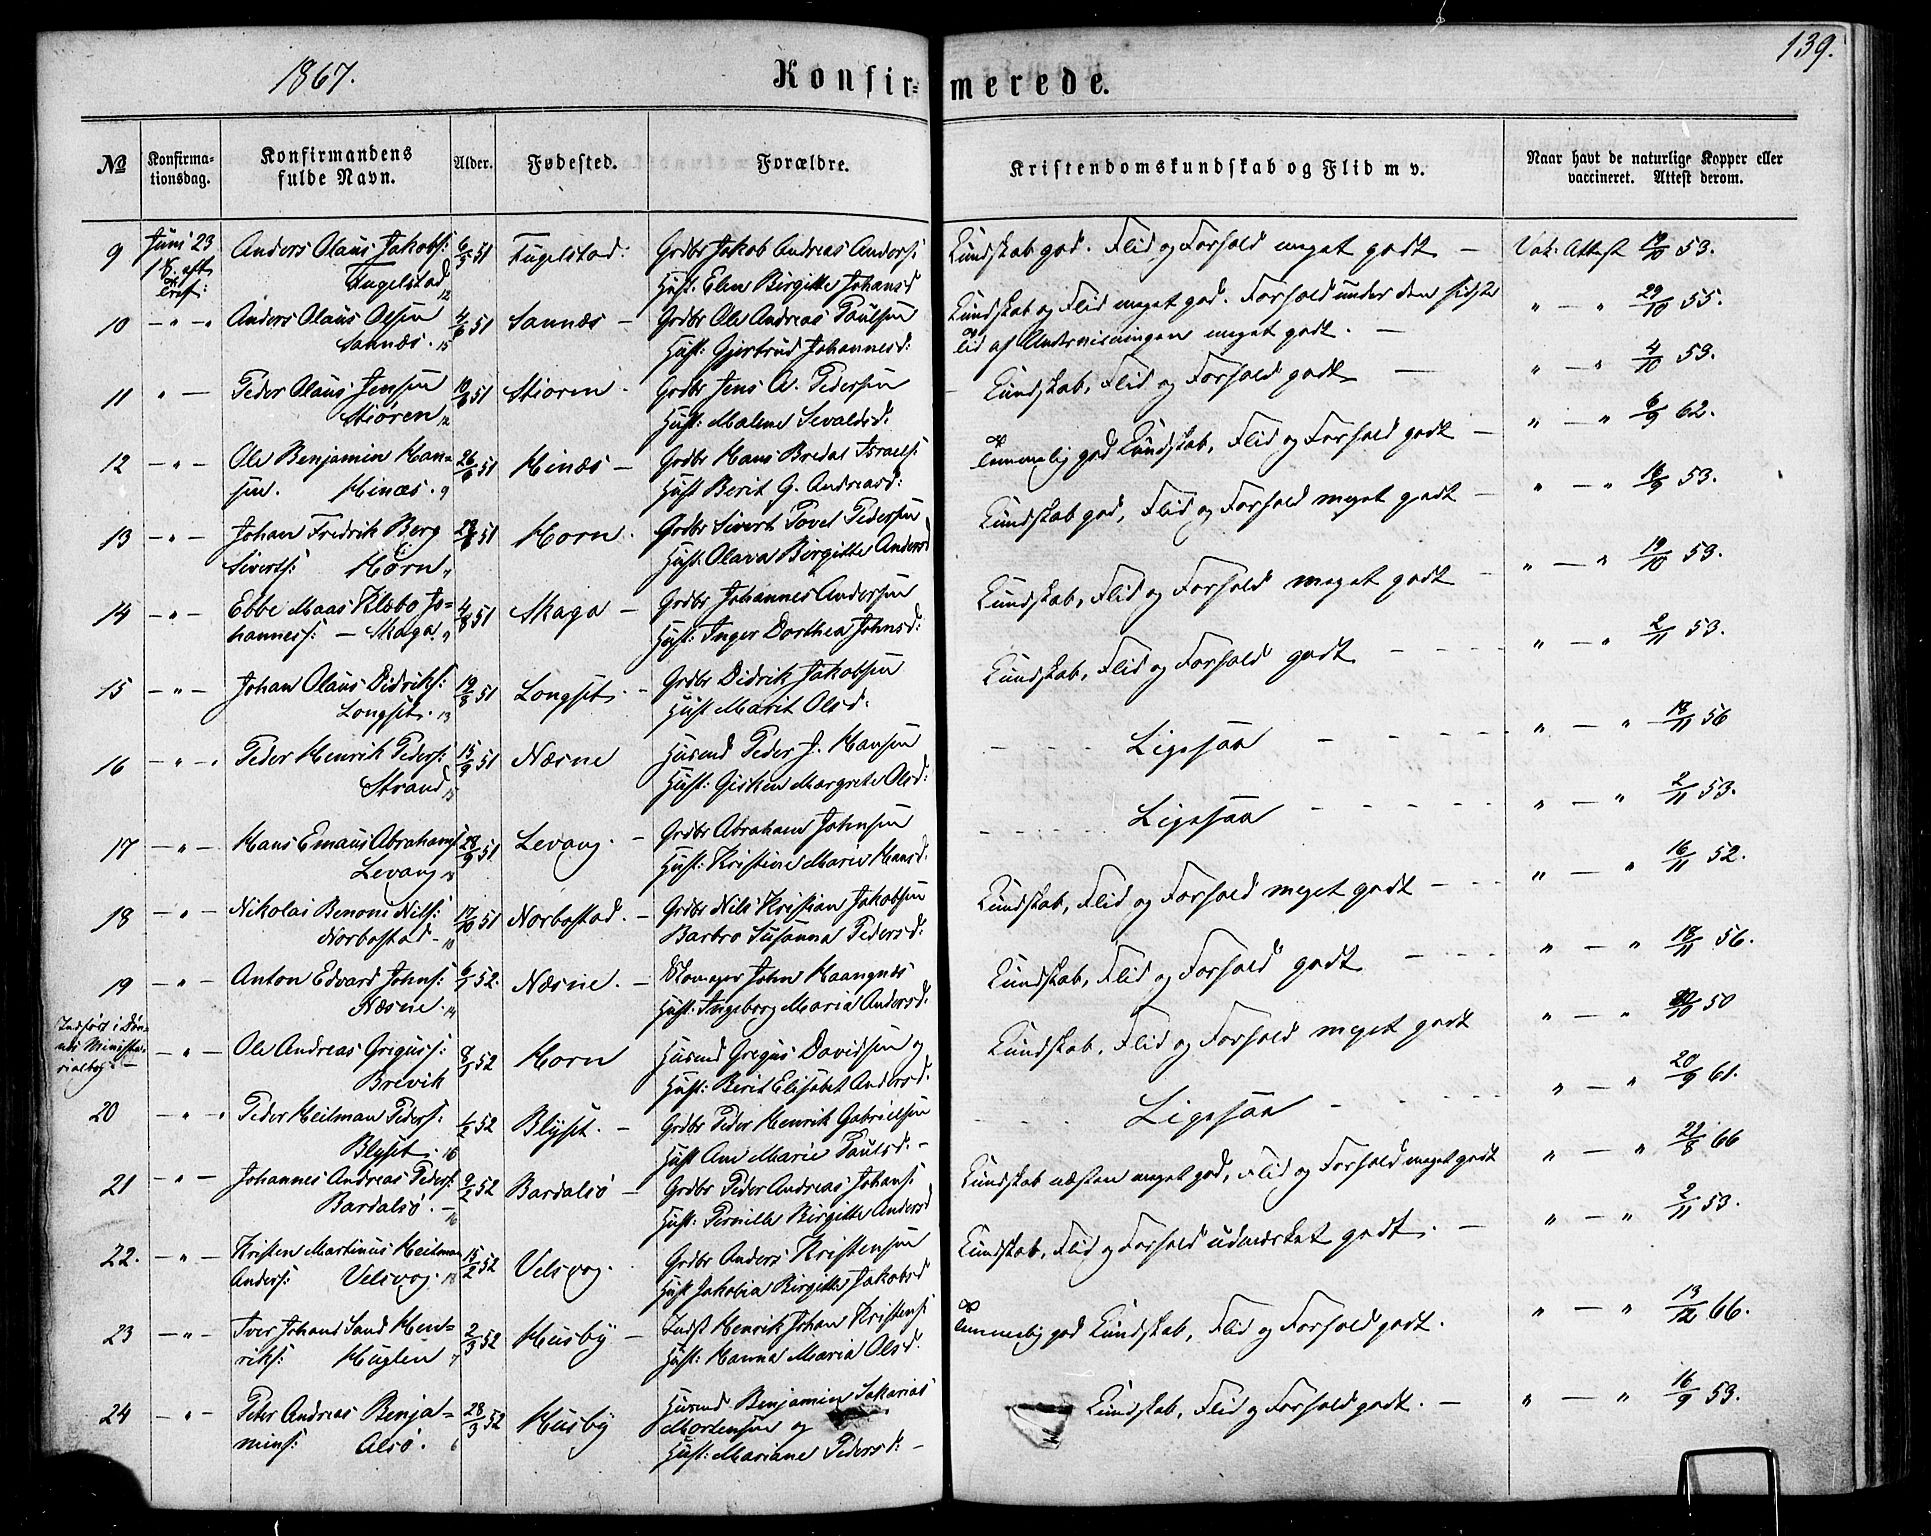 1867.
Konfir-
merede.
139.
№
Konfirma-
tionsdag.
Konfirmandens
fulde Navn.
Alder.
Fødested.
Forældre.
Kristendomskundskab og Flid m v.
Naar havt de naturlige Kopper eller
vaccineret. Attest derom.
9 Juni 23 Anders Olaus Jakobs: 6/5 51 Fugelstad. Grdbr Jakob Andreas Anders: Kundskab god. Flid og Forhold meget godt — Vak: Attest 19/10 53.
Fugelstad 12 Hust. Elen Birgitte Johansd
10 — " — " Anders Olaus Olsen 4/6 51 Sannæs — Grdbr Ole Andreas Paulsen Kundskab og Flid meget god. Forhold under den sidste " — " 29/10 55.
Sannæs. 15 Hust: Gjertrud Johannesd: Tid af Undervisningen meget godt. —
11 " — Peder Olaus Jensen 10/6 51 Stioren. Grdbr Jens A. Pedersen — Kundskab, Flid og Forhold godt — " — " 4/10 53.
Stiøren 12 Hust: Malene Sevaldsd:
12 — " — Ole Benjamin Han- 26/6 51 Hinæs — Grdbr Hans Bredal Israels: Temmelig god Kundskab, Flid og Forhold godt — " — " 6/9 62.
sen. Hinæs. 9 Hust Berit G. Andreasd:
13 — " — Johan Fredrik Berg 28/6 51 Horn. Grdbr Sivert Povel Pedersen Kundskab god, Flid og Forhold meget godt — " — " 16/9 53.
Siverts: Horn, 7 Hust. Olava Birgitte Andersd
14 — " — Ebbe Maas Klæbo Jo- 4/8 51 Skaga — Grdbr Johannes Andersen Kundskab, Flid og Forhold meget godt — " — " 19/10 53.
hanness: — Skaga 9 Hust: Inger Dorthea Johnsd:
15 — " — Johan Olaus Didriks: 19/8 51 Longset. — Grdbr Didrik Jakobsen Kundskab, Flid og Forhold godt — " — " 2/11 53.
Longset. 13 Hust Marit Olsd:
16 — " — " Peder Henrik Peders: 15/9 51 Næsne Husmd Peder J. Hansen Ligesaa — " — " 18/11 56
Strand 15 Hust: Gisken Margrete Olsd:
17 — " — Hans Emaus Abrahams: 28/9 51 Levang. — Grdbr Abraham Johnsen Ligesaa — " — " 2/11 53.
Levang Hust: Kristine Marie Hansd:
18 — " — Nikolai Benoni Nils: 17/10 51 Norbostad. — Grdbr Nils Kristian Jakobsen Kundskab, Flid og Forhold meget godt — " — " 16/11 52.
Norbostad — 10 Barbro Susanna Pedersd:
19 — " — Anton Edvard Johns: 6/1 52. Næsne. — Skomager John Haangnæs Kundskab, Flid og Forhold godt — " — " 18/11 56.
Næsne. 14 Hust: Ingeborg Maria Andersd:
Indført i Døn-
næs Ministe-
rialbog. —
— " — Ole Andreas Greguss: 8/1 52 Horn Husmd Gregus Davidsen og Kundskab, Flid og Forhold meget godt " — " 50
Brevik Hust: Berit Elisabet Andersd.
20 — " " Peder Heitman Peders: 1/2 52 Blyset. — Grdbr Peder Henrik Gabrielsen Ligesaa — " — " 20/9 61.
Blyset. 16 Hust Ane Marie Paulsd: —
21 — " — Johannes Andreas Peders: 2/2 52 Bardalsø — Grdbr Peder Andreas Johans: Kundskab næsten meget god, Flid og Forhold meget godt " — " 29/8 66
Bardalsø. — 16 Hust: Pernille Birgitte Andersd
22. — " — Kristen Martinus Heitman 15/2 52 Velsvog. Grdbr Anders Kristensen Kundskab, Flid og Forhold udmærket godt. — " — " 2/11 53.
Anders: Velsvog. 13 Hust Jakobia Birgitte Jakobsd
23 — " — Iver Johan Sand Hen- 2/3 52 Husby — Indst Henrik Johan Kristens: Temmelig god Kundskab, Flid og Forhold godt. " — " 13/12 66.
riks: Huglen 7 Hust: Hanna Maria Olsd.
24 — " — Peter Andreas Benja- 28/3 52 Husby Husmd Benjamin Sakarias Kundskab, Flid og Forhold godt. — " — " 16/9 53.
mins: Alsø. 6 Mortensen og
Hust: Mariane Pedersd: —